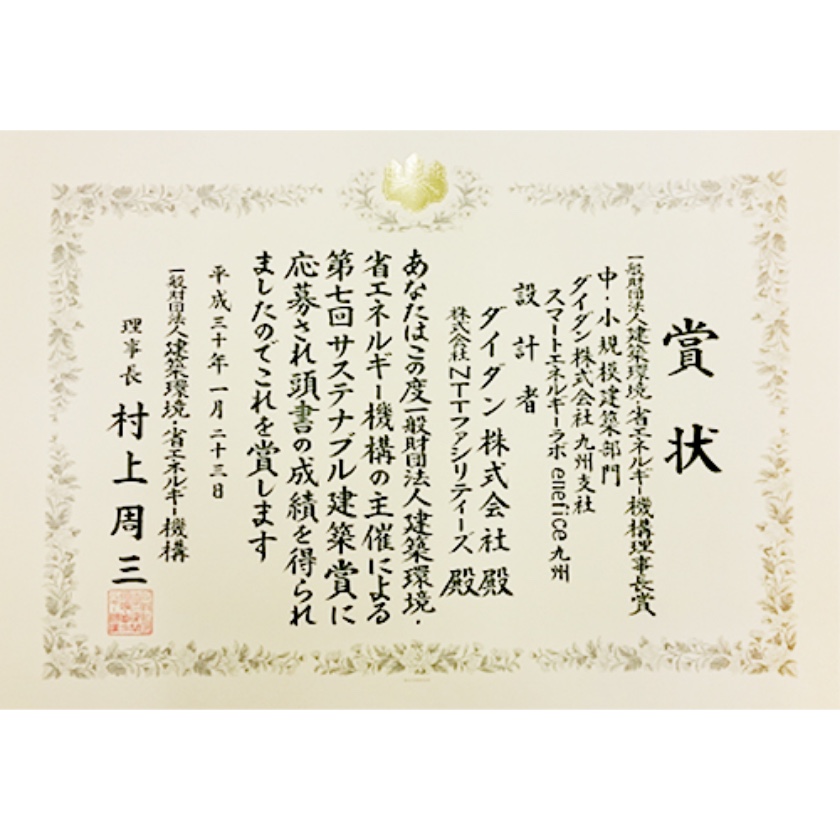 賞状
一般財団法人建築環境・省エネルギー機構理事長賞
中・小規模建築部門
ダイダン株式会社九州支社
スマートエネルギーラボenefice九州
設計者
ダイダン株式会社殿
株式会社NTTファシリティーズ殿
あなたはこの度一般財団法人建築環境・
省エネルギー機構の主催による
第七回サステナブル建築賞に
応募され頭書の成績を得られ
ましたのでこれを賞します
平成三十年一月二十三日
一般財団法人建築環境・省エネルギー機構
理事長村上周三